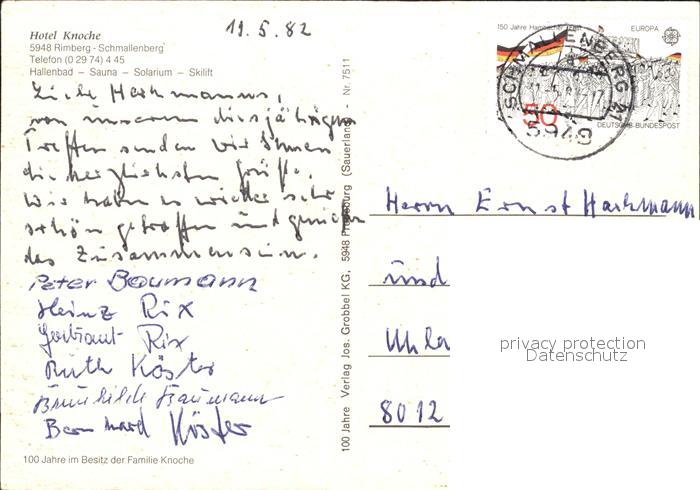 19.5.82
Hotel Knoche
5948 Rimberg - Schmallenberg
Telefon (0 29 74) 4 45
Hallenbad – Sauna – Solarium – Skilift
Liebe Harkmanns,
von unserem diesjährigen
Treffen senden wir Ihnen
die herzlichsten Grüße.
Wir haben es wieder sehr
schön getroffen und genießen
das Zusammensein.
Peter Baumann
Heinz Rix
Gertraut Rix
Ruth Köster
Brunhilde Baumann
Bernhard Köster
100 Jahre im Besitz der Familie Knoche
100 Jahre Verlag Jos. Grobbel KG, 5948 Fredeburg (Sauerland) - Nr. 7511
150 Jahre Hambacher Fest
EUROPA
50
DEUTSCHE BUNDESPOST
SCHMALLENBERG 1
5948
Herrn Ernst Harkmann
und
Uhla
8012
privacy protection
Datenschutz